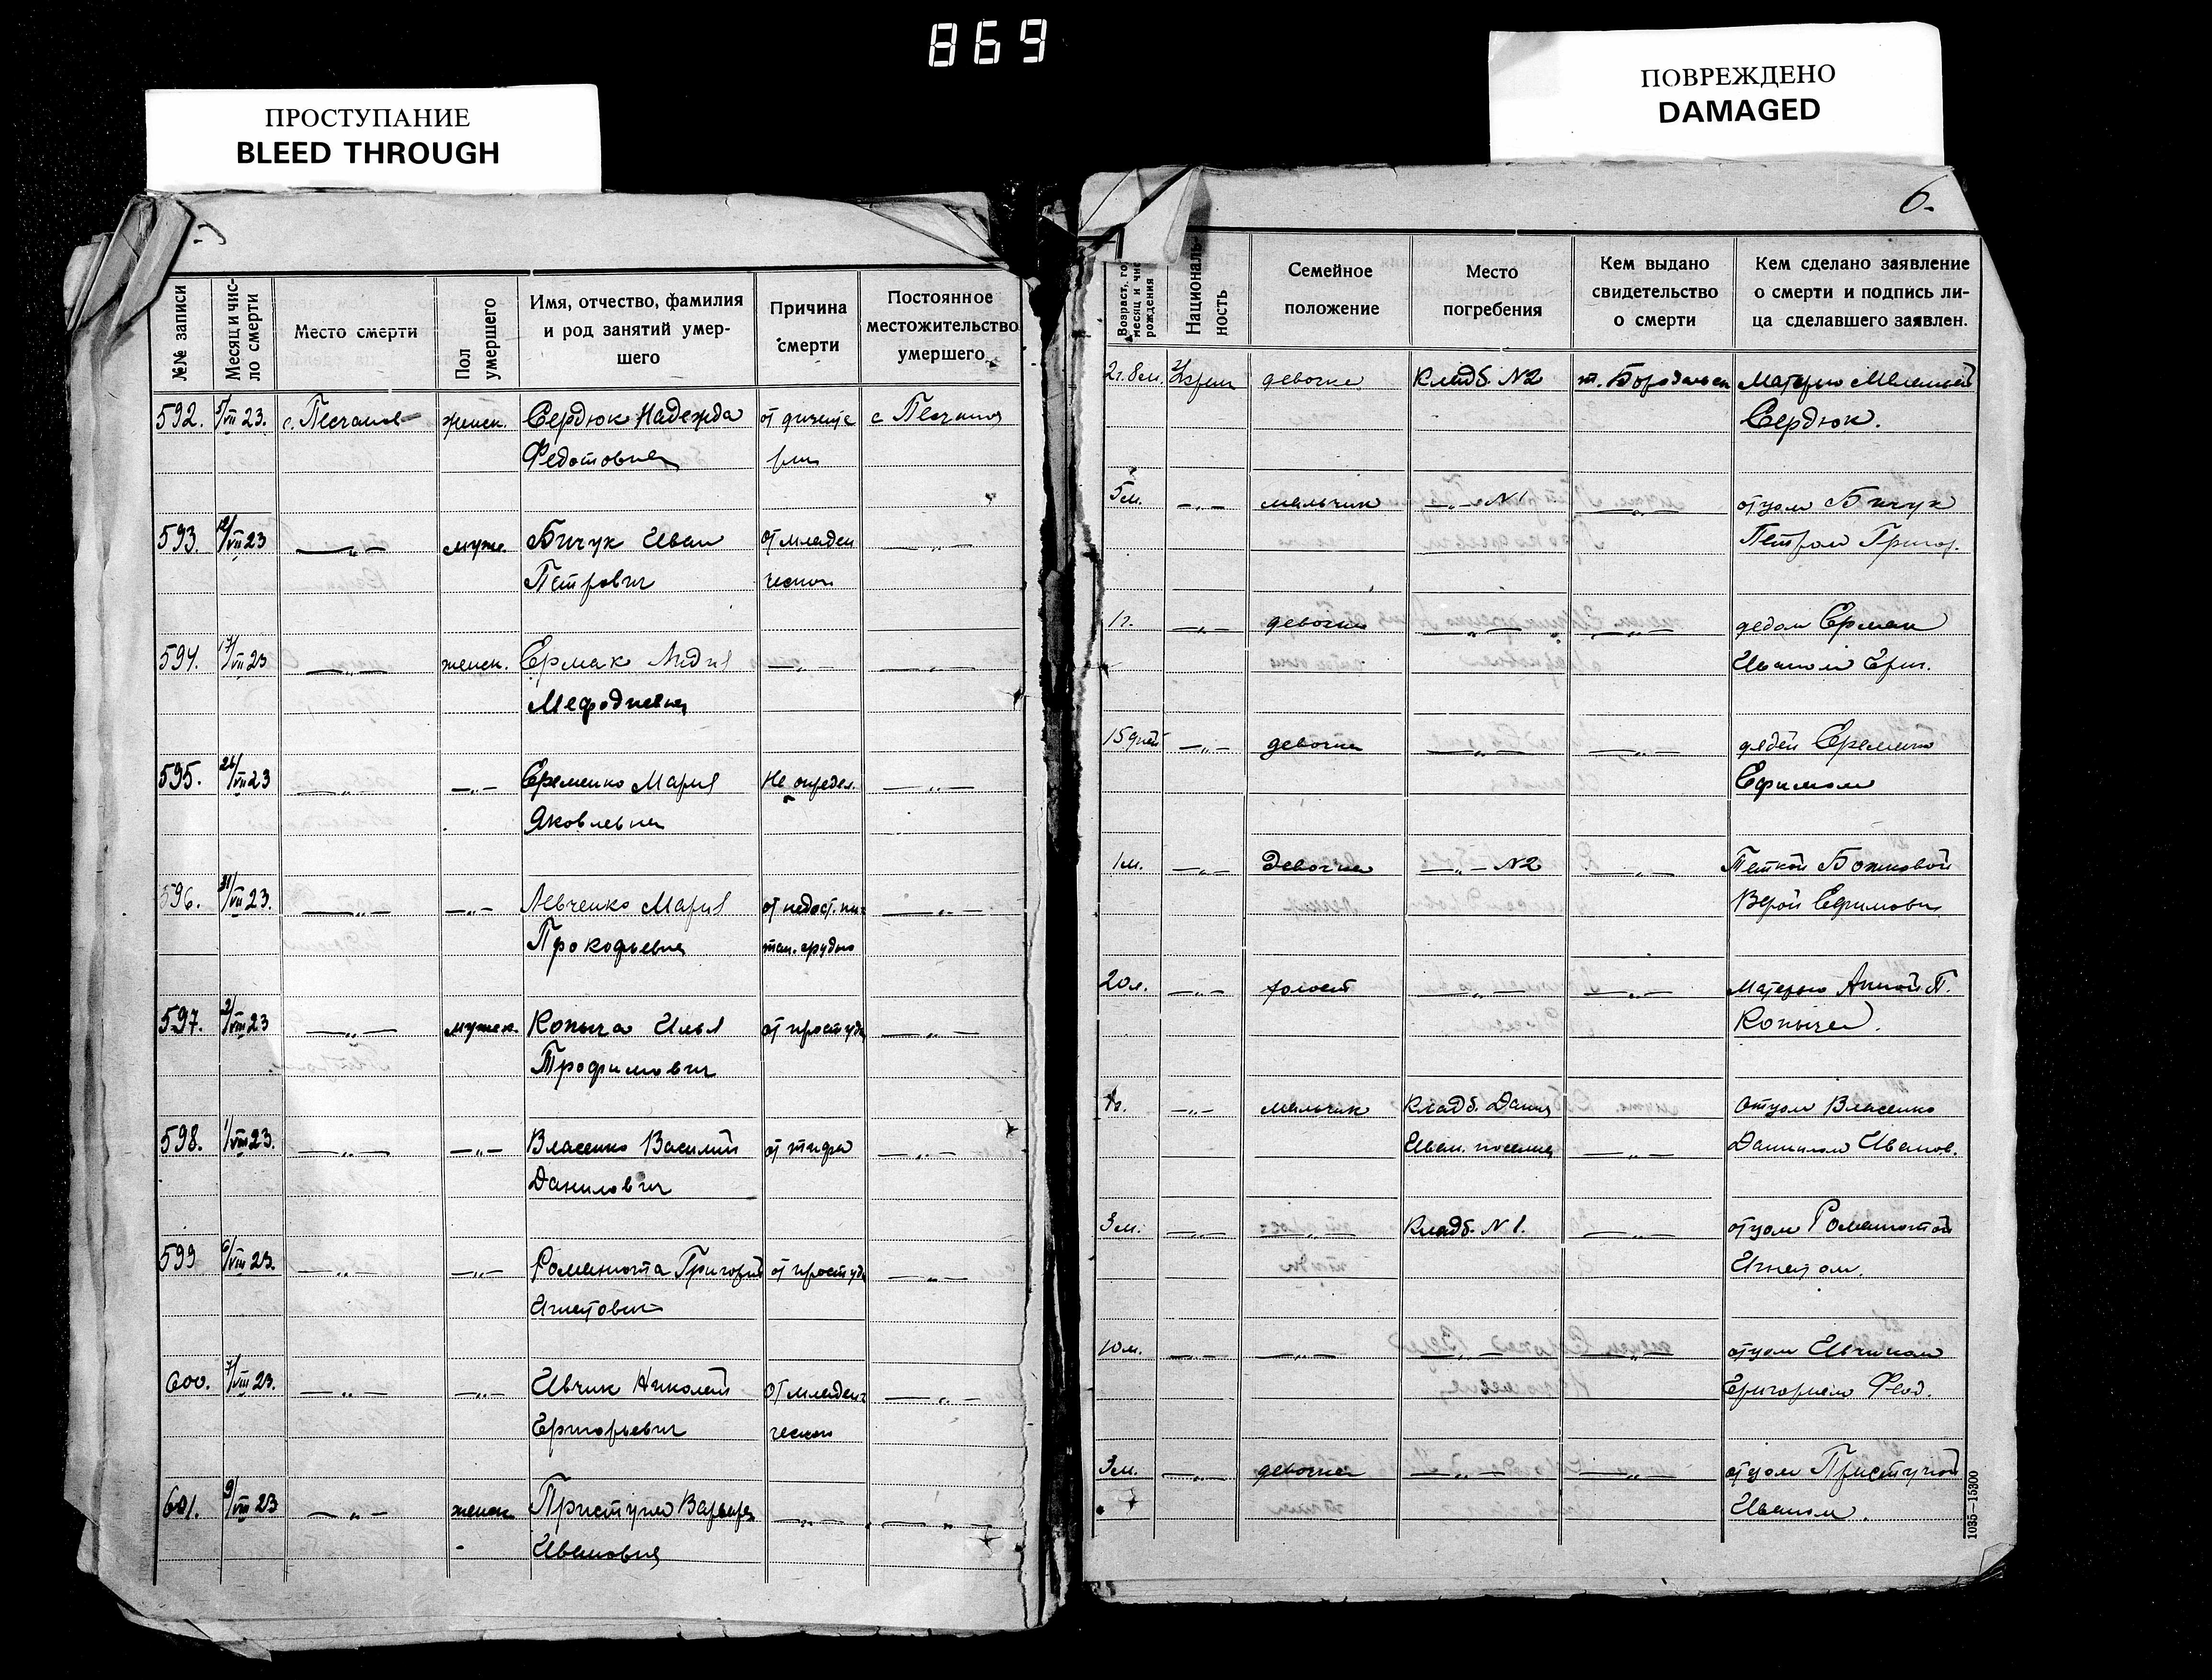 869
ПРОСТУПАНИЕ
BLEED THROUGH
ПОВРЕЖДЕНО
DAMAGED
№№ записи
Месяц и чис-
ло смерти
Место смерти
Пол
умершего
Имя, отчество, фамилия
и род занятий умер-
шего
Причина
смерти
Постоянное
местожительство
умершего
592. 5/VII 23. с. Песчаное женск. Сердюк Надежда от дифте с Песчаное
Федотовна рии
593. 12/VII 23 —„— мужс. Бичук Иван от младен —„—
Петрович ческой
594. 17/VII 23 —„— женск. Ермак Лидия —„— —„—
Мефодиевна
595. 26/VII 23 —„— —„— Еременко Мария Не определ. —„—
Яковлевна
596. 31/VII 23. —„— —„— Левченко Мария от недост. пи- —„—
Прокофьевна тан. грудью
597. 2/VIII 23 —„— мужск. Копыча Илья от простуды —„—
Трофимович
598. 1/VIII 23. —„— —„— Власенко Василий от тифа —„—
Данилович
599 6/VIII 23. —„— —„— Романюта Григорий от простуды —„—
Игнатович
600. 7/VIII 23. —„— —„— Ивчик Николай от младен- —„—
Григорьевич ческой
601. 9/VIII 23 —„— женск. Приступа Варвара —„— —„—
Ивановна
6.
Возраст, го
месяц и чис
рождения
Националь-
ность
Семейное
положение
Место
погребения
Кем выдано
свидетельство
о смерти
Кем сделано заявление
о смерти и подпись ли-
ца сделавшего заявлен.
2г. 8м. Украин девочка Кладб. N2 Матерью
Сердюк.
5м. —„— мальчик —„— N1 —„— отцом Бичук
Петром Григор.
1г. —„— девочка —„— —„— дедом Ермак
Иваном Григ.
15 дней —„— девочка —„— —„— дядей Еременко
Ефимом
1м. —„— девочка —„— N2 —„— Теткой Божковой
Верой Ефимовн
20л. —„— холост —„— —„— Матерью Анной П.
Копыча.
1г. —„— мальчик Кладб. Данил Отцом Власенко
Иван. поселка —„— Данилом Иванов.
3м. —„— —„— Кладб. N1. —„— отцом Романютой
Игнатом.
10м. —„— —„— —„— —„— отцом Ивчиком
Григорием Фед.
3м. —„— девочка —„— —„— отцом Приступой
Иваном.
1035—15300